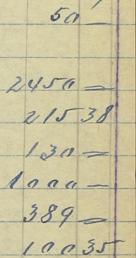 50 =
2450 =
215 38
130 =
1000 =
389 =
100 35